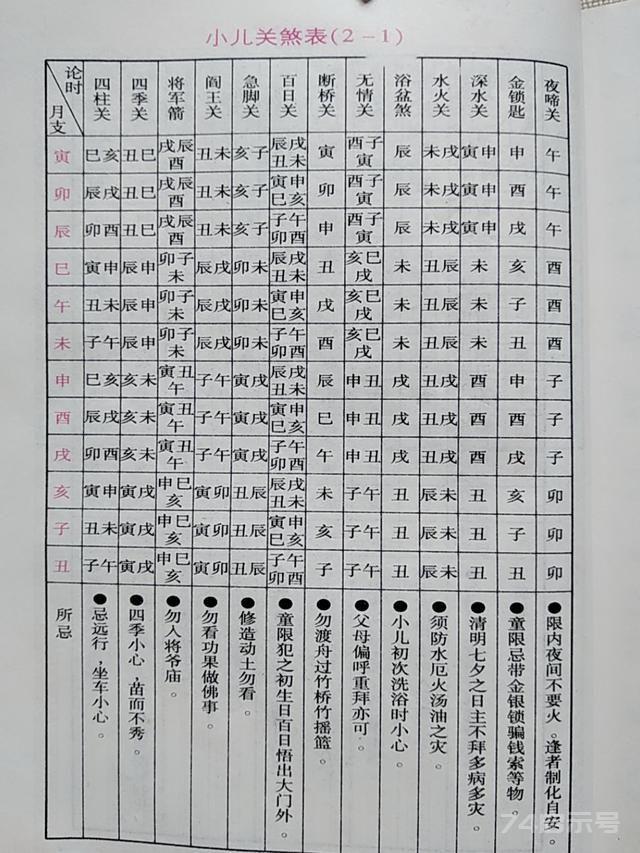 小儿关煞表(2-1)
论时 月支 四柱关 四季关 将军箭 阎王关 急脚关 百日关 断桥关 无情关 浴盆煞 水火关 深水关 金锁匙 夜啼关
寅 巳亥 丑巳 戌辰酉 丑未 亥子 辰戌丑未 寅 酉子寅 辰 未戌 寅申 申 午
卯 辰戌 丑巳 戌辰酉 丑未 亥子 寅申巳亥 卯 酉子寅 辰 未戌 寅申 酉 午
辰 卯酉 丑巳 戌辰酉 丑未 亥子 子午卯酉 申 酉子寅 辰 未戌 寅申 戌 午
巳 寅申 辰申 卯子未 辰戌 卯未 辰戌丑未 丑 亥巳戌 未 丑辰 未 亥 酉
午 丑未 辰申 卯子未 辰戌 卯未 寅申巳亥 戌 亥巳戌 未 丑辰 未 子 酉
未 子午 辰申 卯子未 辰戌 卯未 子午卯酉 酉 亥巳戌 未 丑辰 未 丑 酉
申 巳亥 亥未 寅丑午 子午 寅戌 辰戌丑未 辰 申丑 戌 丑戌 酉 申 子
酉 辰戌 亥未 寅丑午 子午 寅戌 寅申巳亥 巳 申丑 戌 丑戌 酉 酉 子
戌 卯酉 亥未 寅丑午 子午 寅戌 子午卯酉 午 申丑 戌 丑戌 酉 戌 子
亥 寅申 寅戌 申巳亥 寅卯 丑辰 辰戌丑未 未 子午 丑 辰未 丑 亥 卯
子 丑未 寅戌 申巳亥 寅卯 丑辰 寅申巳亥 亥 子午 丑 辰未 丑 子 卯
丑 子午 寅戌 申巳亥 寅卯 丑辰 子午卯酉 子 子午 丑 辰未 丑 丑 卯
所忌
●忌远行，坐车小心。
●四季小心，苗而不秀。
●勿入将爷庙。
●勿看功果做佛事。
●修造动土勿看。
●童限犯之初生日百日悟出大门外。
●勿渡舟过竹桥竹摇篮。
●父母偏呼重拜亦可。
●小儿初次洗浴时小心。
●须防水厄火汤油之灾。
●清明七夕之日主不拜多病多灾。
●童限忌带金银锁骗钱索等物。
●限内夜间不要火。逢者制化自安。